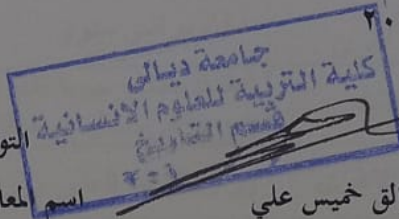 ٢٠
جامعة ديالى
كلية التربية للعلوم الانسانية
قسم التاريخ
التو
الق خميس علي
اسم المعا